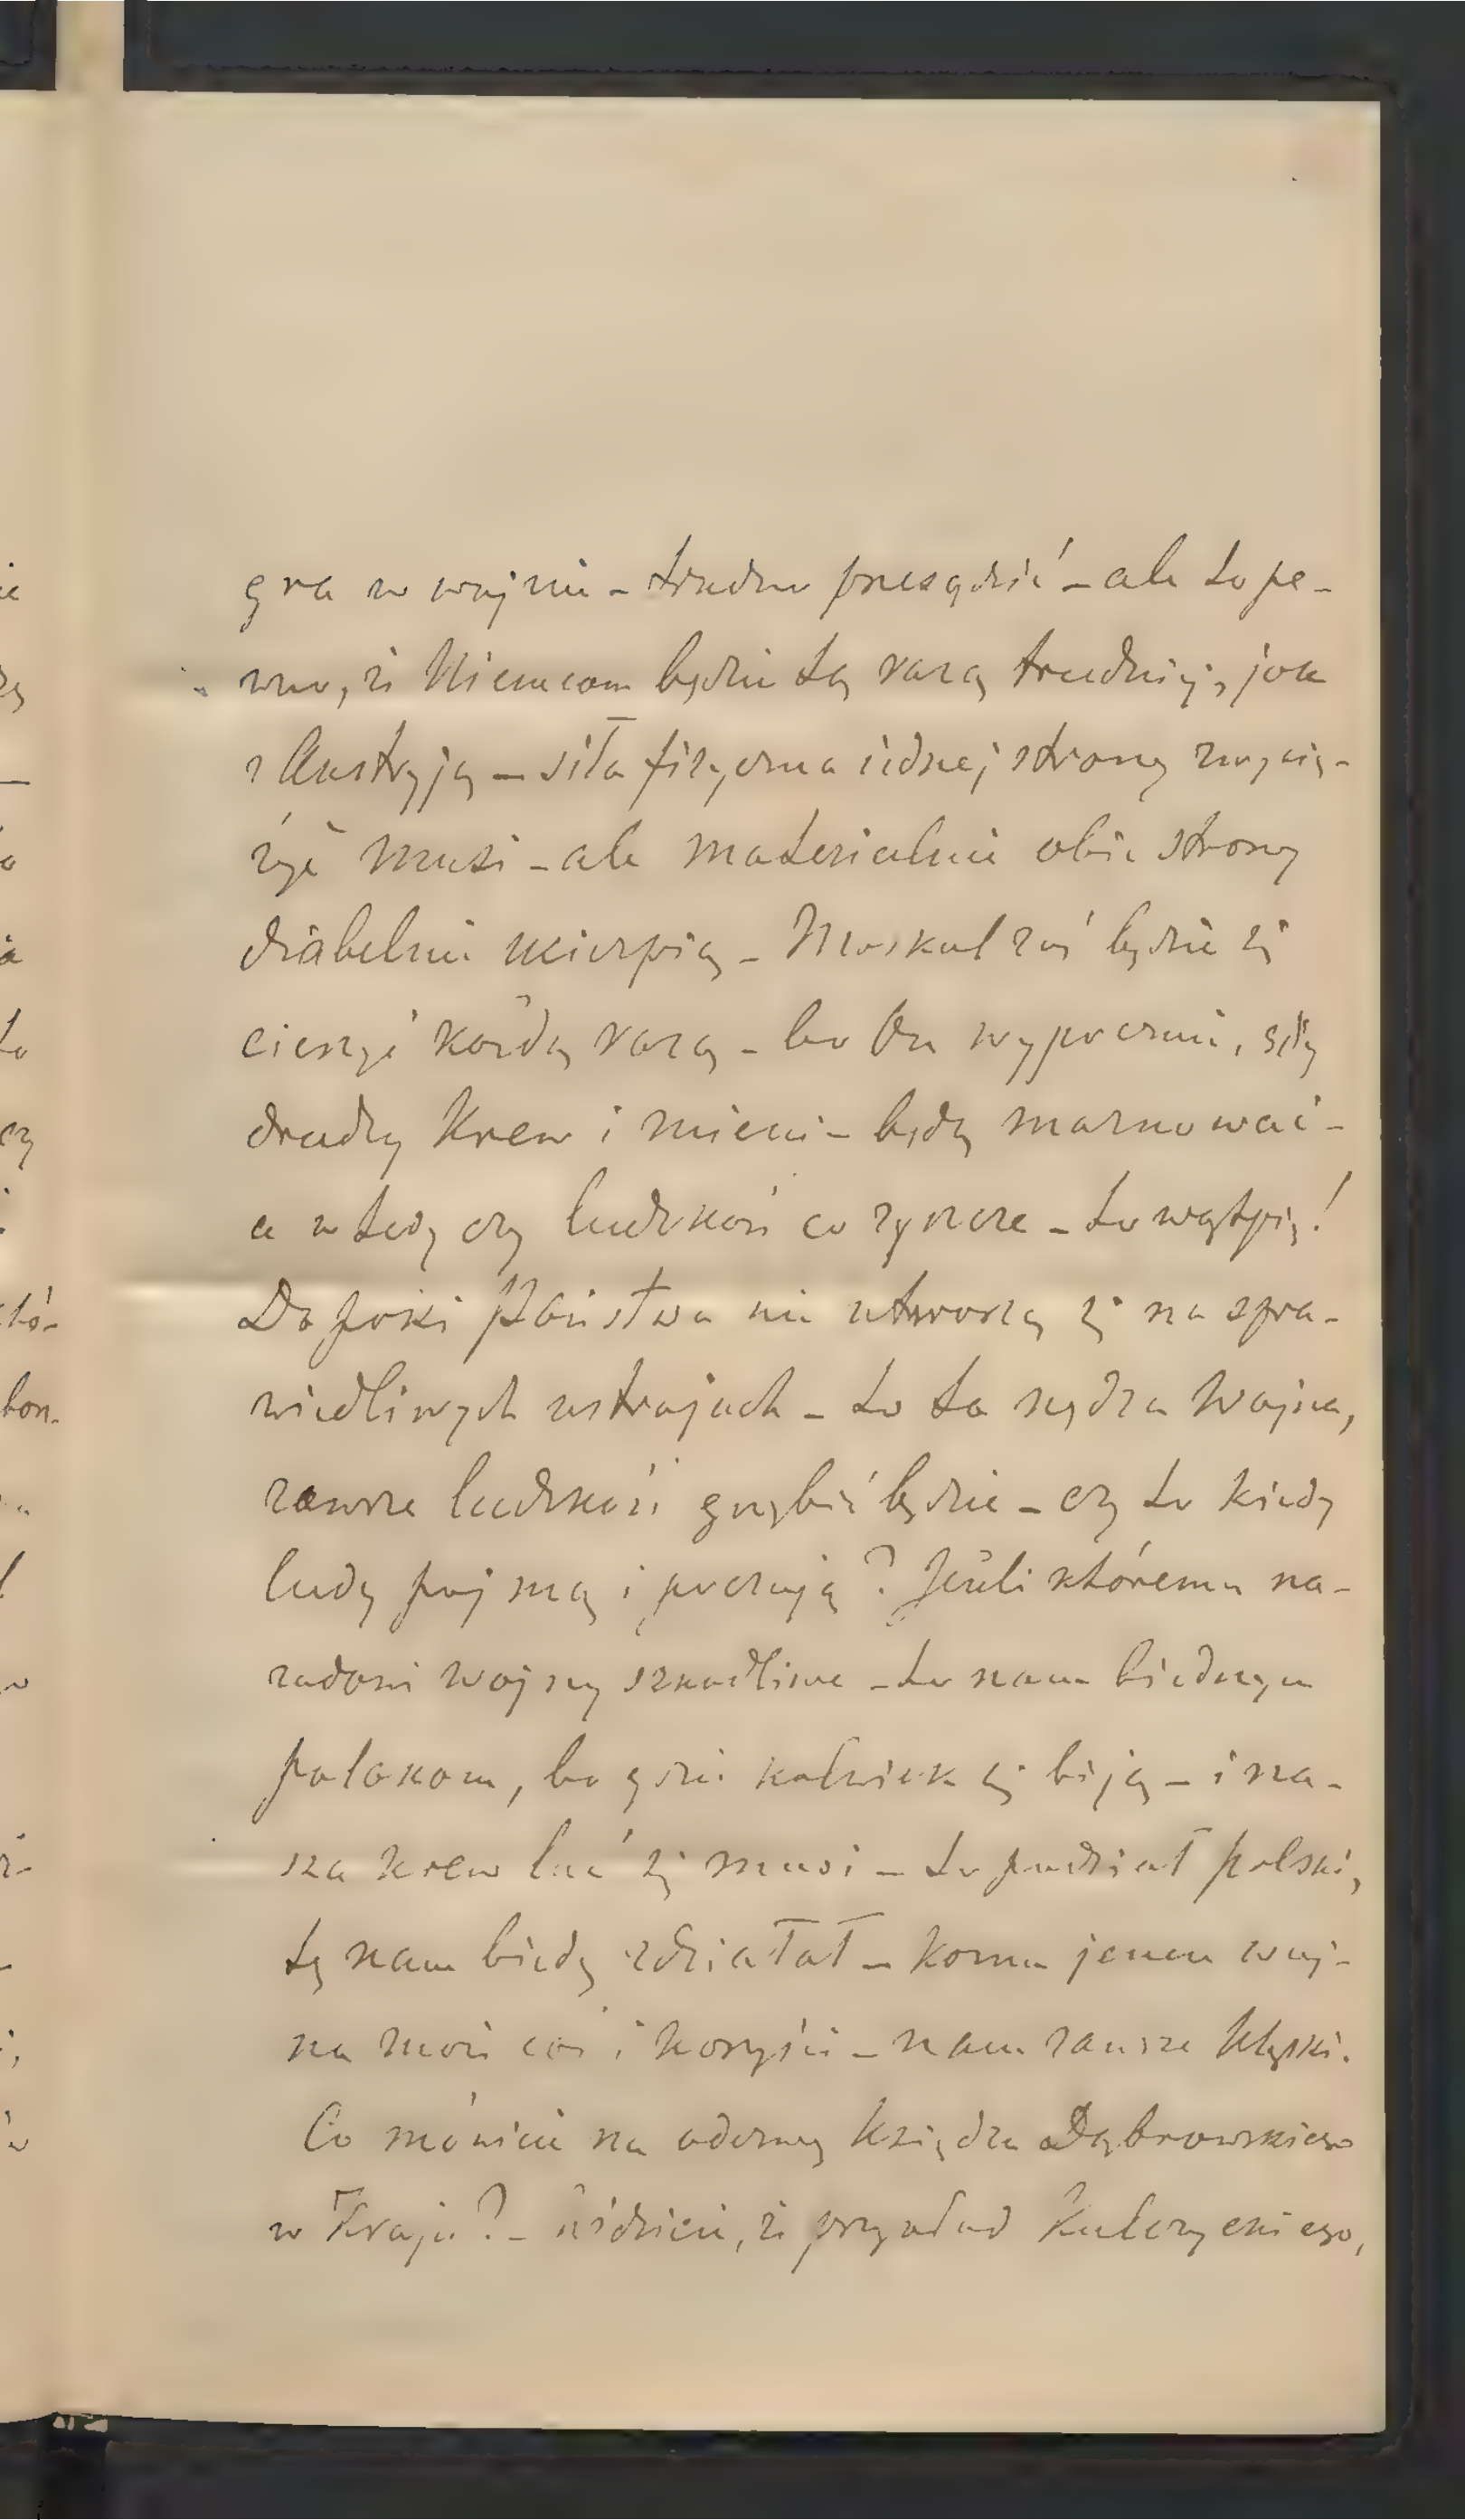 gra w wojnie – trudno przesądzić – ale to pe-
wno, że Niemcom będzie tą razą trudniej, jak
z Austryją – siła fizyczna jednej strony zwycię-
żyć musi – ale materialnie obie strony
diabelnie ucierpią – Moskal zaś będzie się
cieszyć każdą razą – bo On wypocznie, gdy
drudzy Krew i mienie – będą marnować –
a wtedy czy ludzkość co zyszcze – to wątpię!
Dopóki Państwa nie utworzą się na spra-
wiedliwych ustrojach – to ta nędza Wojna,
zawsze ludzkość gnębić będzie – czy to kiedy
ludy pojmą i poczują? Jeżeli któremu na-
rodowi wojny szkodliwe – to nam biednym
polakom, bo gdzie kolwiek się biją – i na-
sza krew lać się musi – to podział polski,
tę nam biedę zdziałał – komu innem woj-
na może coś i korzyści – nam zawsze klęski.
Co mówicie na odezwę Księdza Dąbrowskiego
w Kraju? – widzicie, że przykład Kulczyckiego,